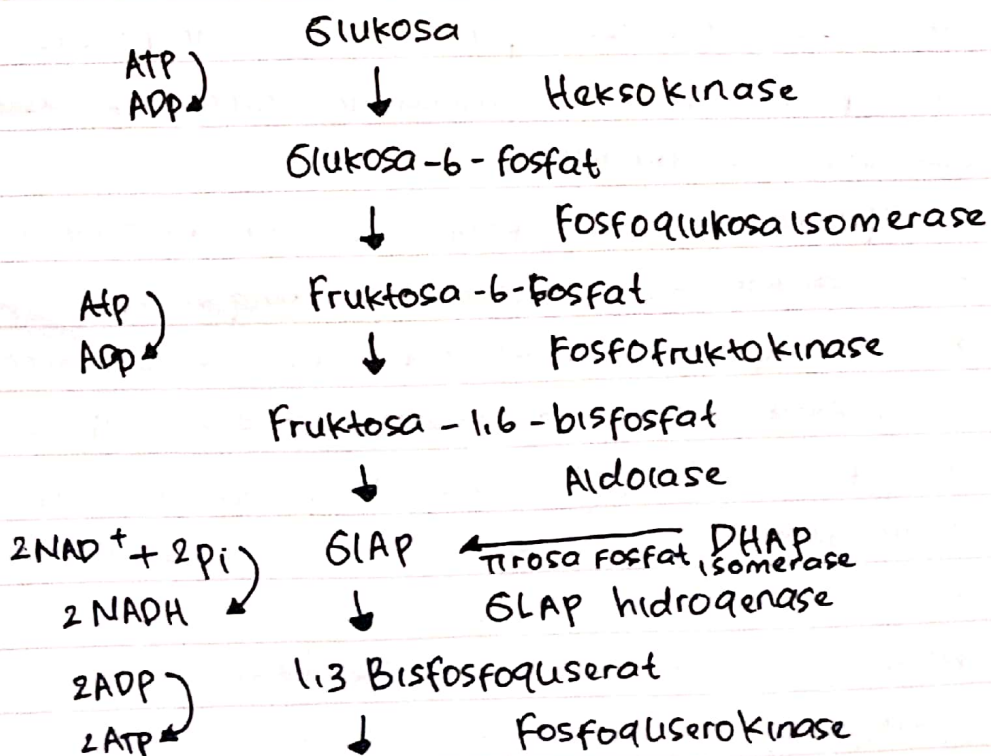 Glukosa
ATP
ADP
Heksokinase
Glukosa-6-fosfat
Fosfoglukosa isomerase
ATP
ADP
Fruktosa-6-Fosfat
Fosfofruktokinase
Fruktosa-1,6-bisfosfat
Aldolase
2NAD⁺ + 2Pi
2 NADH
GlAP
DHAP
Tirosa Fosfat isomerase
GLAP hidrogenase
2ADP
2ATP
1,3 Bisfosfogliserat
Fosfogliserokinase